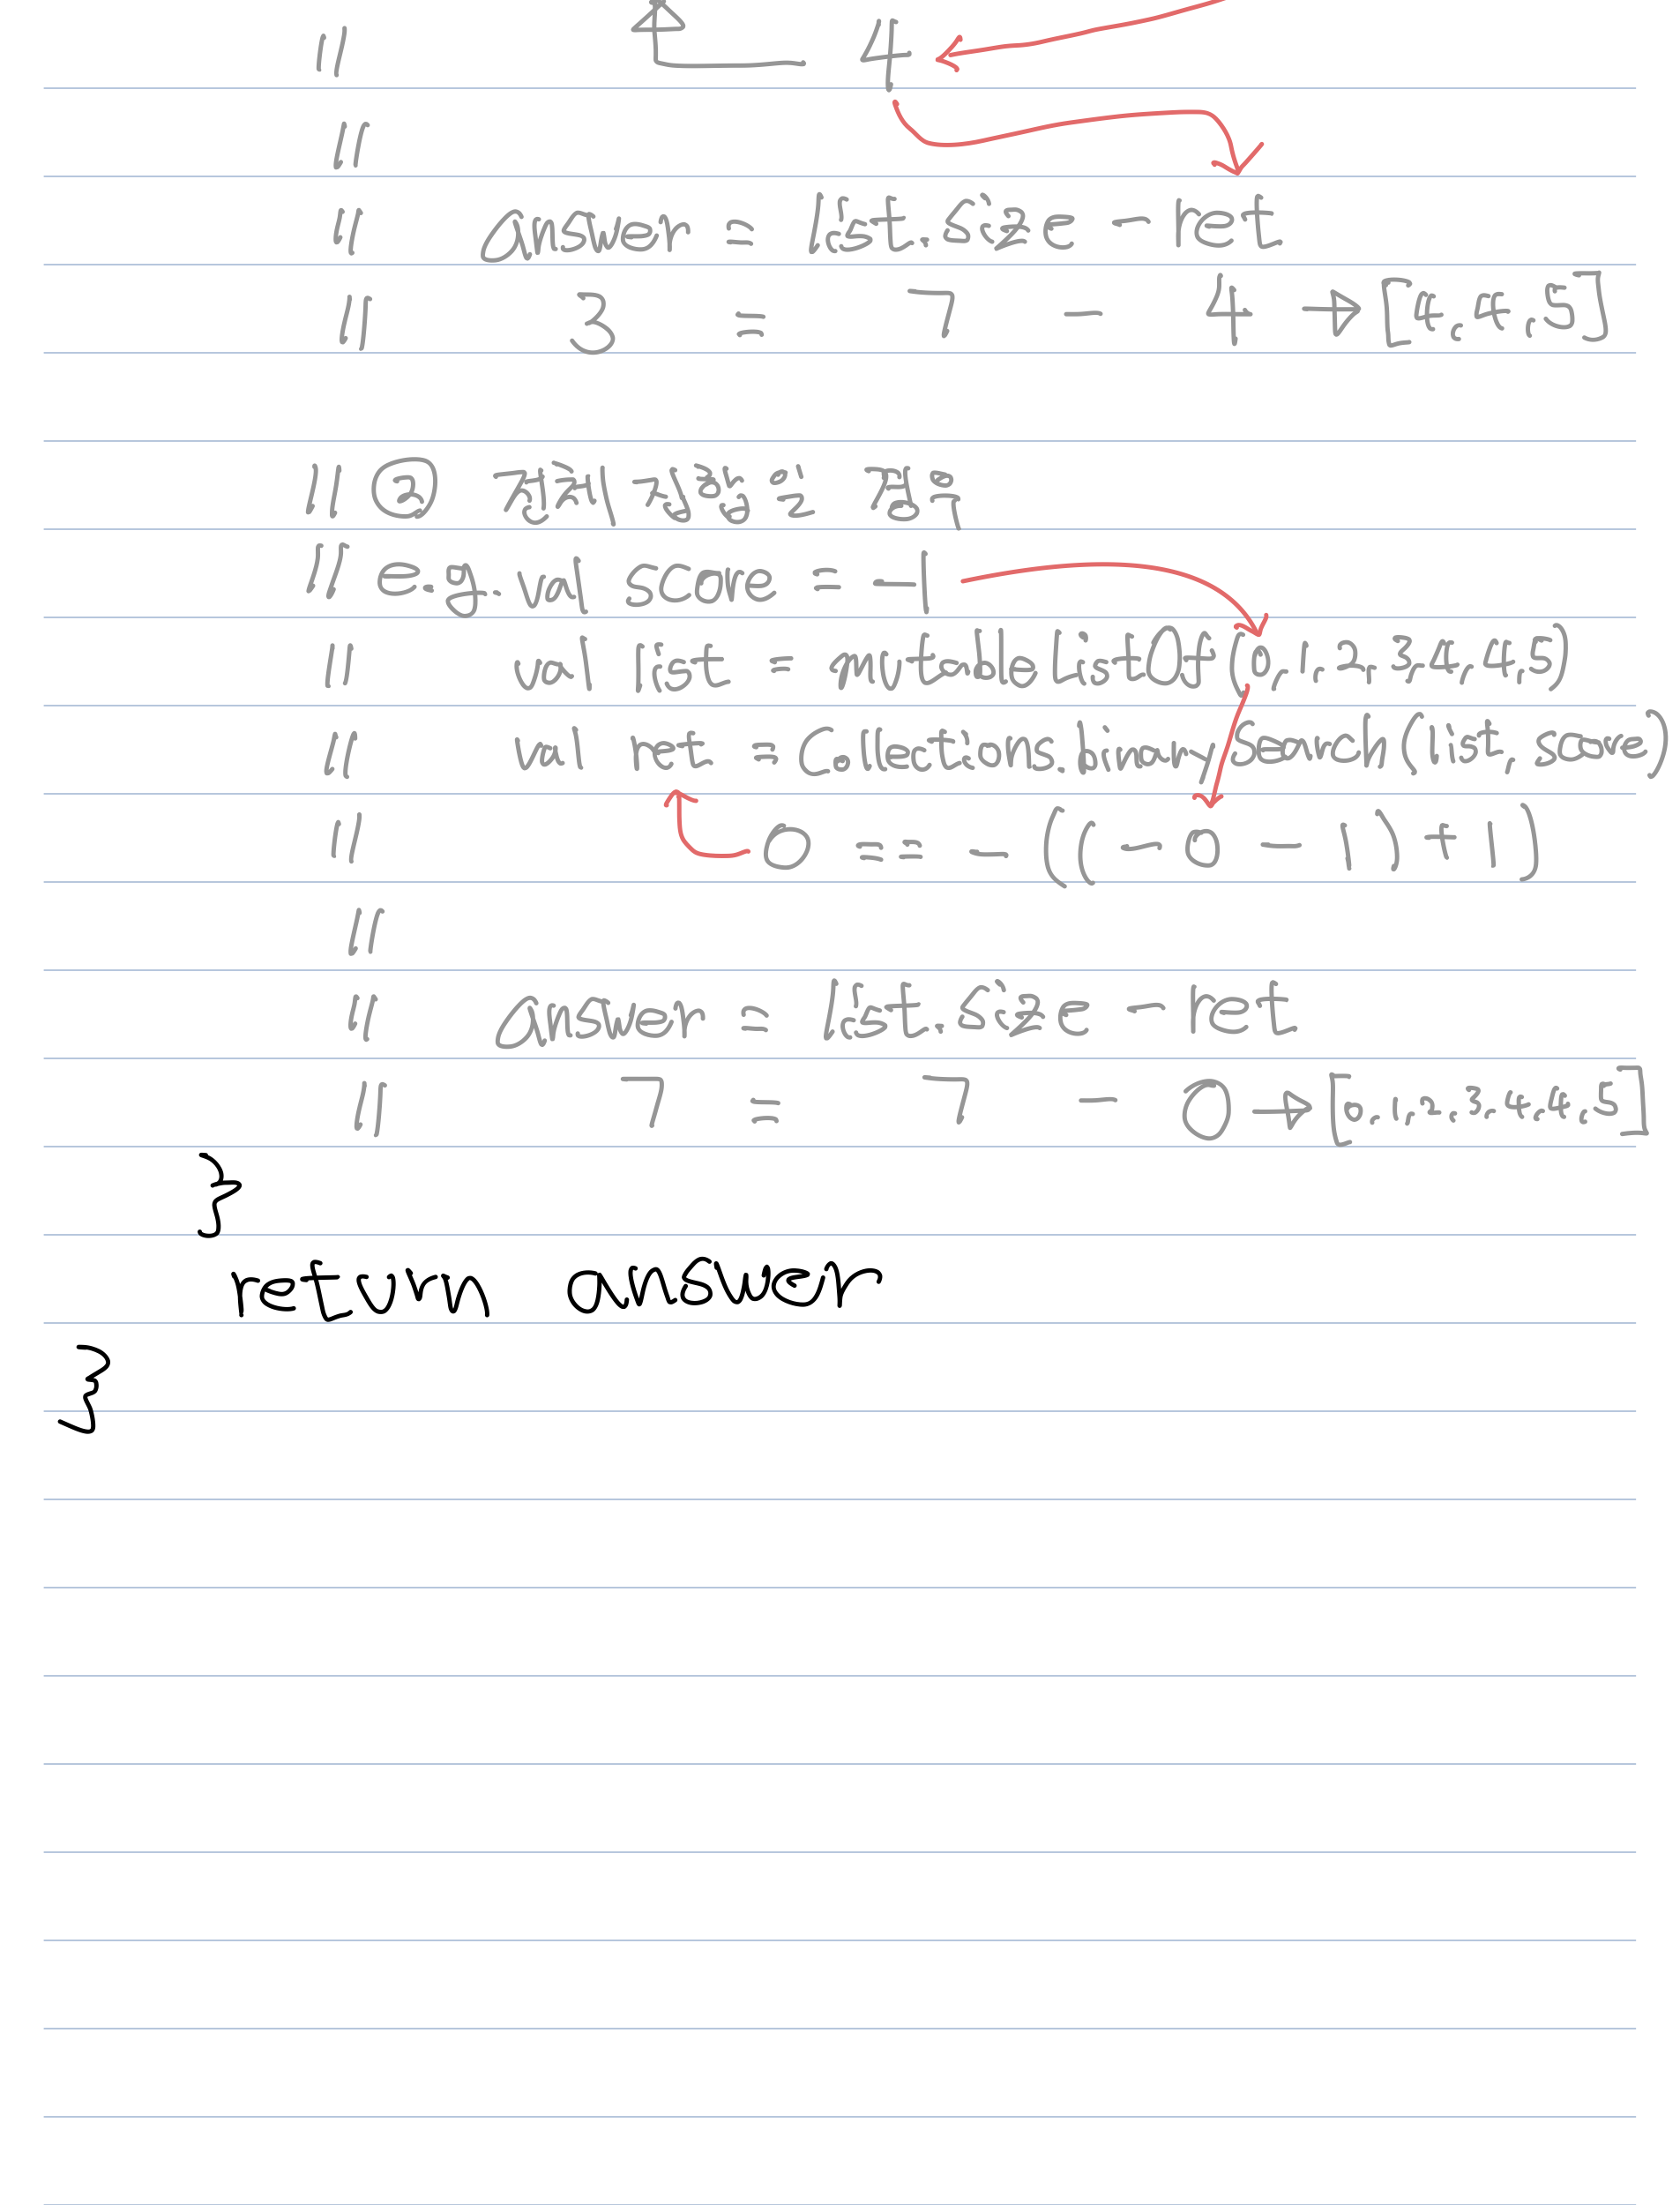 // 4
//
// answer = list.size - ret
// 3 = 7 - 4 → [4,4,5]
// ②
// e.g. val score = -1
// val list = mutableListOf(0,1,2,3,4,4,5)
// val ret = Collections.binarySearch(list, score)
// 0 == -((-0-1)+1)
//
// answer = list.size - ret
// 7 = 7 - 0 → [0,1,2,3,4,4,5]
}
return answer
}